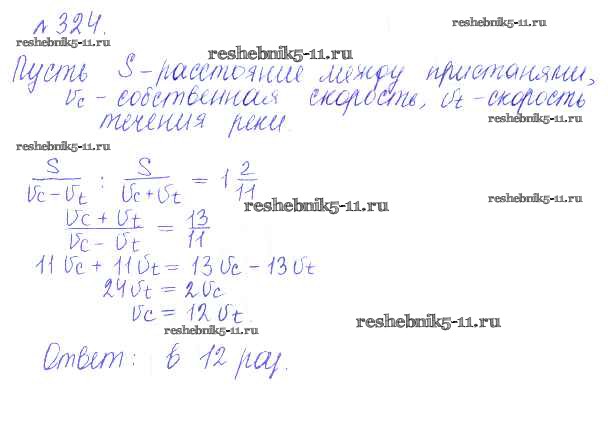 №324.
reshebnik5-11.ru
reshebnik5-11.ru
reshebnik5-11.ru
Пусть S - расстояние между пристанями,
Vc - собственная скорость, Vt - скорость
течения реки.
reshebnik5-11.ru
reshebnik5-11.ru
S/(Vc - Vt) : S/(Vc + Vt) = 1 2/11
reshebnik5-11.ru
reshebnik5-11.ru
(Vc + Vt)/(Vc - Vt) = 13/11
11Vc + 11Vt = 13Vc - 13Vt
24Vt = 2Vc
Vc = 12Vt.
reshebnik5-11.ru
reshebnik5-11.ru
Ответ: в 12 раз.